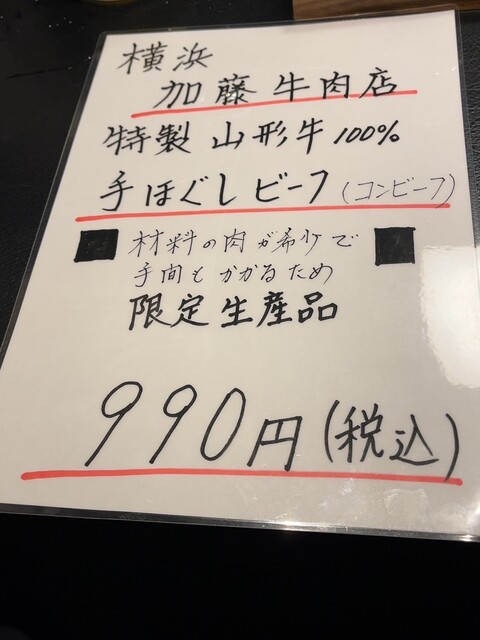 横浜
加藤牛肉店
特製 山形牛100%
手ほぐしビーフ(コンビーフ)
材料の肉が希少で
手間もかかるため
限定生産品
990円(税込)